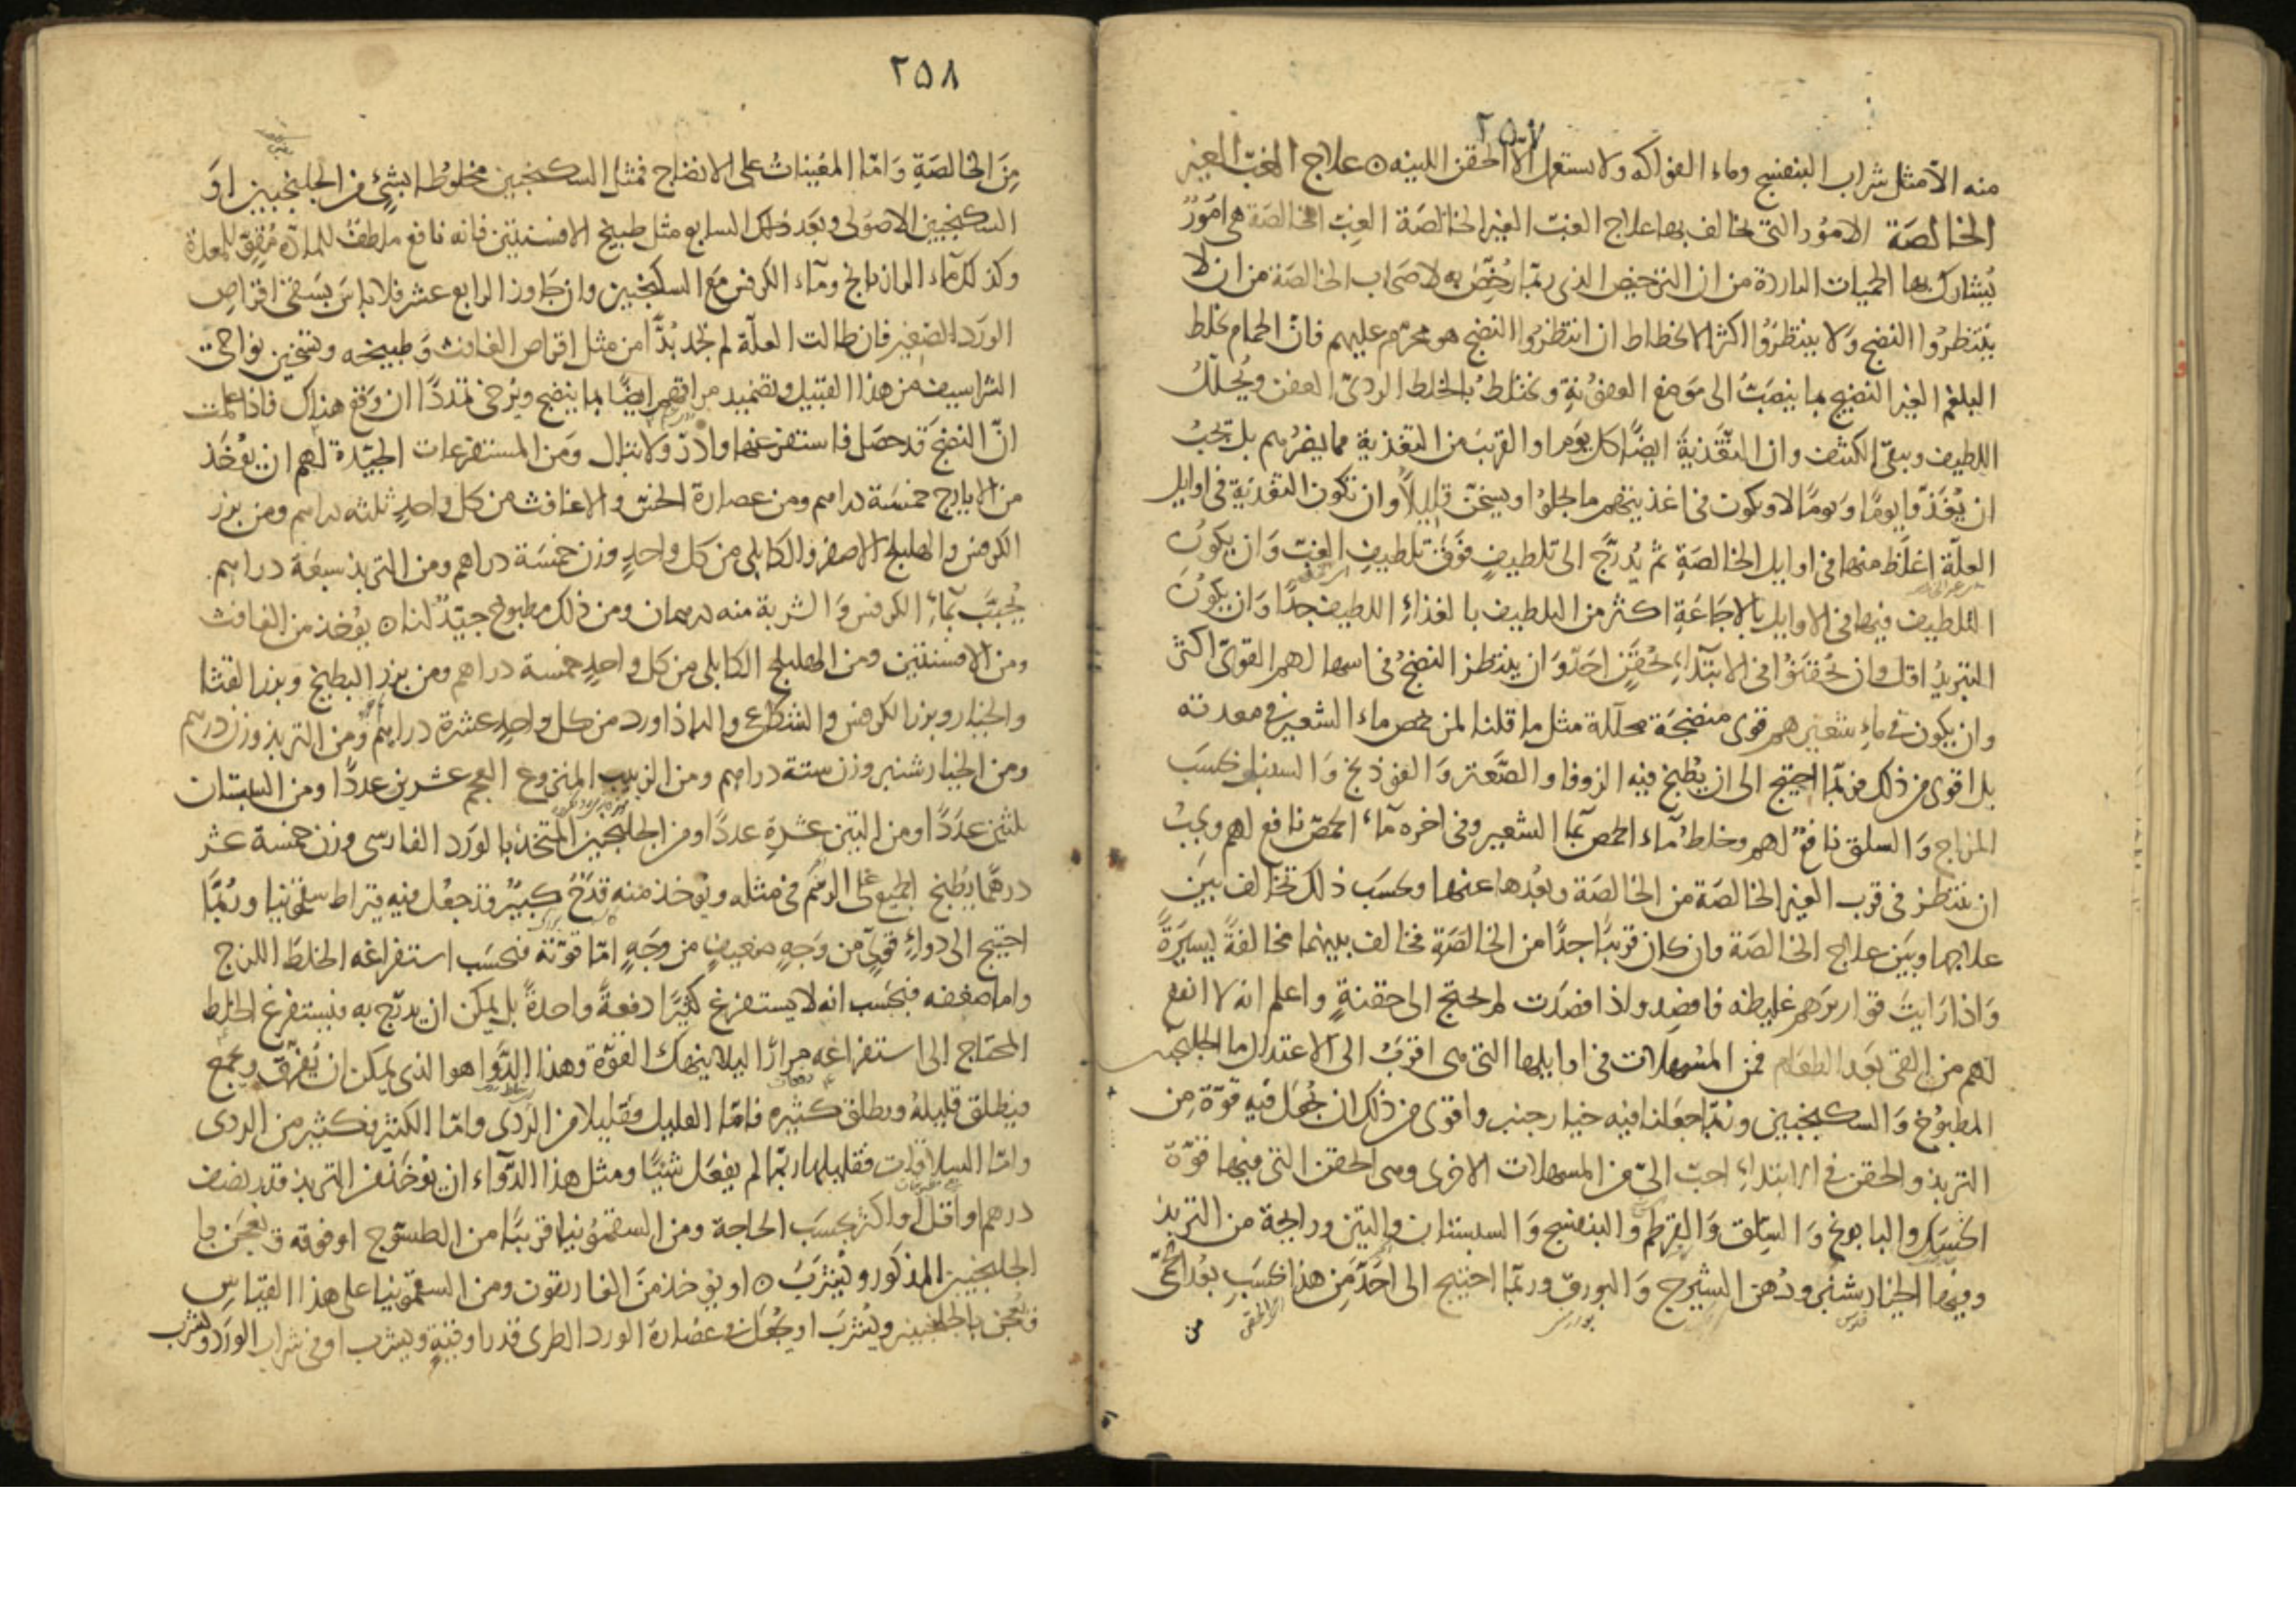 ٢٥٧
منه الا مثل شراب البنفسج وماء الفواكه ولا يستعمل الا الحقن اللينه ٥ علاج الغب الغير
الخالصة الامور التى يخالف بها علاج الغب الغير الخالصة الغب الخالصة هى امور
يشارك بها الحميات الباردة من ان الترخيص الذى ربما رخص به لاصحاب الخالصة من ان لا
ينتظروا النضج ولا ينتظروا اكثر الانحطاط ان انتظروا النضج هو محرم عليهم فان الحمام يخلط
البلغم الغير النضيج بما ينصب الى موضع العفونة ويختلط بالخلط الردى العفن ويحلل
اللطيف ويبقى الكثيف وان التغذية ايضا كل يوم او القريب من التغذية مما يضرهم بل يجب
ان يغذوا يوما ويوما لا ويكون فى اغذيتهم ما يجلوا ويسخن قليلا وان تكون التغذية فى اوايل
العلة اغلظ منها فى اوايل الخالصة ثم يدرج الى تلطيف فوق تلطيف الغب وان يكون
التلطيف فيها فى الاوايل بالاجاعة اكثر من التلطيف بالغذاء اللطيف جدا وان يكون
التبريد اقل وان يحقنوا فى الابتداء بحقن احد وان ينتظر النضج فى اسهالهم القوى اكثر
وان يكون فى ماء شعيرهم قوى منضجة محللة مثل ما قلنا لمن حمض ماء الشعير فى معدته
بل اقوى من ذلك فربما احتيج الى ان يطبخ فيه الزوفا والصعتر والفوذنج والسنبل بحسب
المزاج والسلق نافع لهم وخلط ماء الحمص بماء الشعير وفى اخره ماء الحمص نافع لهم ويجب
ان ينتظر فى قرب الغير الخالصة من الخالصة وبعدها عنها وبحسب ذلك تخالف بين
علاجها وبين علاج الخالصة وان كان قريبا جدا من الخالصة فخالف بينهما مخالفة يسيرة
واذا رايت قواريرهم غليظه فافصد واذا فصدت لم يحتج الى حقنة واعلم انه لا انفع
لهم من القى بعد الطعام فمن المسهلات فى اوايلها التى هى اقرب الى الاعتدال ماء الجلنجبين
المطبوخ والسكنجبين وربما جعلنا فيه خيارجنبر واقوى من ذلك ان يجعل فيه قوة من
التربد والحقن فى الابتداء احب الى من المسهلات الاخرى وهى الحقن التى فيها قوة
الحسك والبابونج والسلق والقرطم والبنفسج والسبستان والتين ورايحة من التربد
وفيها الخيارشنبر ودهن الشيرج والبورق وربما احتيج الى احد من هذا بحسب بعد الحمى
من
٢٥٨
من الخالصة واما المعينات على الانضاج فمثل السكنجبين مخلوطا بشئ من الجلنجبين او
السكنجبين الاصولى وبعد ذلك السابع مثل طبيخ الافسنتين فانه نافع ملطف للمادة مقو للمعدة
وكذلك ماء الرازيانج وماء الكرفس مع السكنجبين وان جاوز الرابع عشر فلا باس بسقى اقراص
الورد الصغير فان طالت العلة لم تجد بدا من مثل اقراص الغافث وطبيخه وتسخين نواحى
الشراسيف من هذا القبيل وتضميد مراقهم ايضا بما ينضج ويرخى تمددا ان وقع هناك فاذا علمت
ان النضج قد حصل فاستفرغها وادر ولا تبال ومن المستفرغات الجيدة لهم ان يؤخذ
من الايارج خمسة دراهم ومن عصارة الخس والاغافث من كل واحد ثلثه دراهم ومن بزر
الكرفس والهليلج الاصفر والكابلى من كل واحد وزن خمسة دراهم ومن التربد سبعة دراهم
يحبب بماء الكرفس والشربة منه درهمان ومن ذلك مطبوخ جيد لنا ٥ يؤخذ من الغافث
ومن الافسنتين ومن الهليلج الكابلى من كل واحد خمسة دراهم ومن بزر البطيخ وبزر القثا
والخيار وبزر الكرفس والشكاعى والباذاورد من كل واحد عشرة دراهم ومن التربد وزن درهم
ومن الخيارشنبر وزن ستة دراهم ومن الزبيب المنزوع العجم عشرين عددا ومن السبستان
ثلثين عددا ومن التين عشرة عددا ومن الجلنجبين المتخذ بالورد الفارسى وزن خمسة عشر
درهما يطبخ الجميع على الرسم فى مثله ويؤخذ منه قدح كبير قد جعل فيه قيراط سقمونيا وربما
احتيج الى دواء قوى من وجه ضعيف من وجه اما قوته فبحسب استفراغه الخلط اللزج
واما ضعفه فبحسب انه لا يستفرغ كثيرا دفعة واحدة بل يمكن ان يدرج به فيستفرغ الخلط
المحتاج الى استفراغه مرارا ليلا ينهك القوة وهذا الدوا هو الذى يمكن ان يفرق ويجمع
فيطلق قليله ويطلق كثيره فاما القليل فقليلا من الردى واما الكثير فكثير من الردى
واما السلاقات فقليلها ربما لم يفعل شيئا ومثل هذا الدواء ان يؤخذ من التربد قدر نصف
درهم او اقل او اكثر بحسب الحاجة ومن السقمونيا قريبا من الطسوج او فوقه ويعجن با
الجلنجبين المذكور ويشرب ٥ او يؤخذ من الغاريقون ومن السقمونيا على هذا القياس
ويعجن بالجلنجبين ويشرب او يجعل فى عصارة الورد الطرى قدر اوقية ويشرب او فى شراب الورد ويشرب